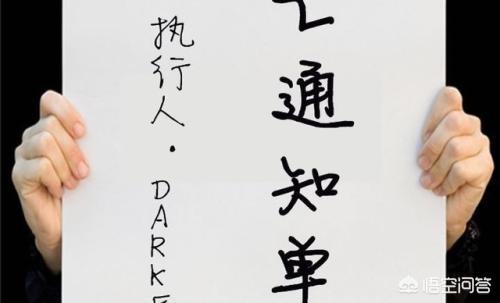 通知单
执行人·DARK
悟空问答